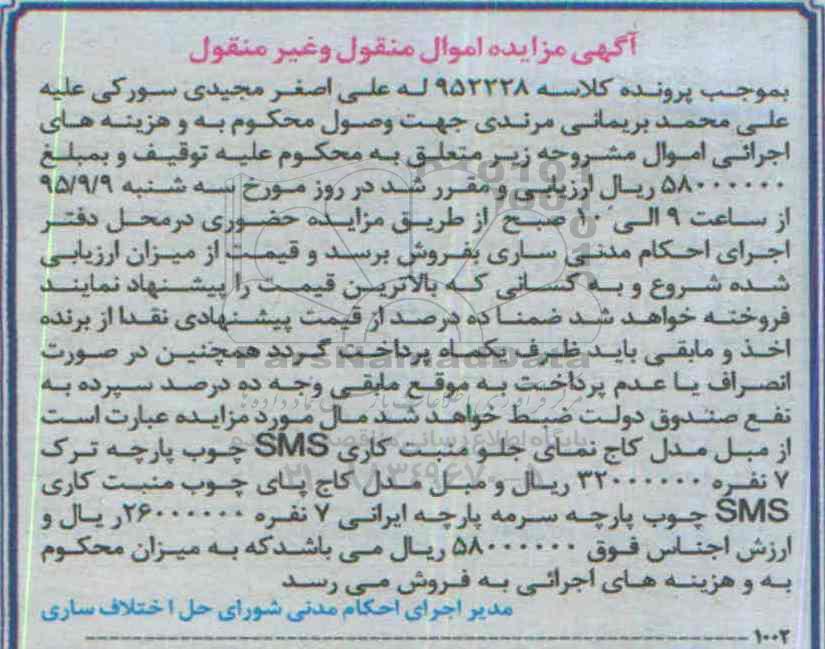 آگهی مزایده اموال منقول وغیر منقول
بموجب پرونده کلاسه ۹۵۲۲۲۸ له علی اصغر مجیدی سورکی علیه
علی محمد بریمانی مرندی جهت وصول محکوم به و هزینه های
اجرائی اموال مشروحه زیر متعلق به محکوم علیه توقیف و بمبلغ
۵۸۰۰۰۰۰۰ ریال ارزیابی و مقرر شد در روز مورخ سه شنبه ۹۵/۹/۹
از ساعت ۹ الی ۱۰ صبح از طریق مزایده حضوری درمحل دفتر
اجرای احکام مدنی ساری بفروش برسد و قیمت از میزان ارزیابی
شده شروع و به کسانی که بالاترین قیمت را پیشنهاد نمایند
فروخته خواهد شد ضمنا ده درصد از قیمت پیشنهادی نقدا از برنده
اخذ و مابقی باید ظرف یکماه پرداخت گردد همچنین در صورت
انصراف یا عدم پرداخت به موقع مابقی وجه ده درصد سپرده به
نفع صندوق دولت ضبط خواهد شد مال مورد مزایده عبارت است
از مبل مدل کاج نمای جلو منبت کاری SMS چوب پارچه ترک
۷ نفره ۳۲۰۰۰۰۰۰ ریال و مبل مدل کاج پای چوب منبت کاری
SMS چوب پارچه سرمه پارچه ایرانی ۷ نفره ۲۶۰۰۰۰۰۰ریال و
ارزش اجناس فوق ۵۸۰۰۰۰۰۰ ریال می باشدکه به میزان محکوم
به و هزینه های اجرائی به فروش می رسد
مدیر اجرای احکام مدنی شورای حل اختلاف ساری
۱۰۰۲
ParsNamadData